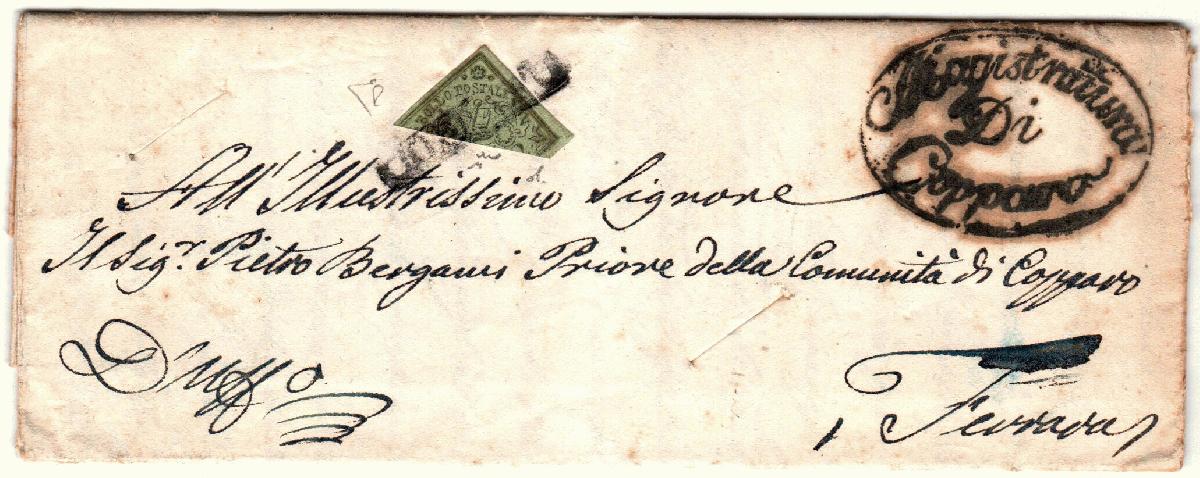 BOLLO POSTALE
Magistratura
Di
Codogoro
All' Illustrissimo Signore
Il Sigr. Pietro Bergami Priore della Comunità di Copparo
D'uffo
Ferrara